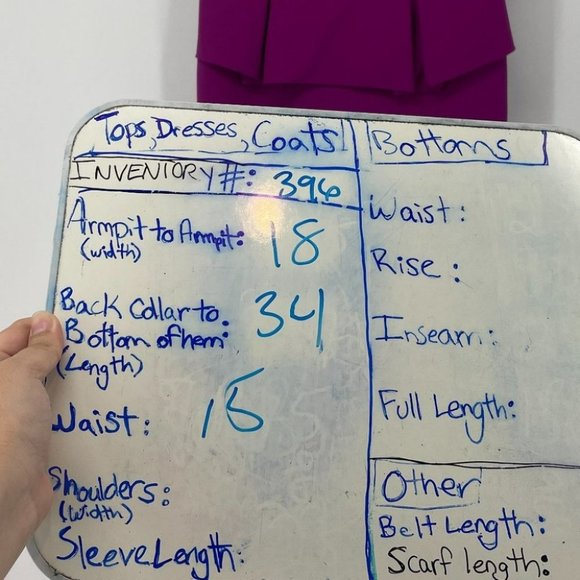 Tops, Dresses, Coats
INVENTORY #: 396
Armpit to Armpit: 18
(width)
Back Collar to
Bottom of hem: 34
(Length)
Waist: 15
Shoulders:
(width)
Sleeve Length:
Bottoms
Waist:
Rise:
Inseam:
Full Length:
Other
Belt Length:
Scarf length: